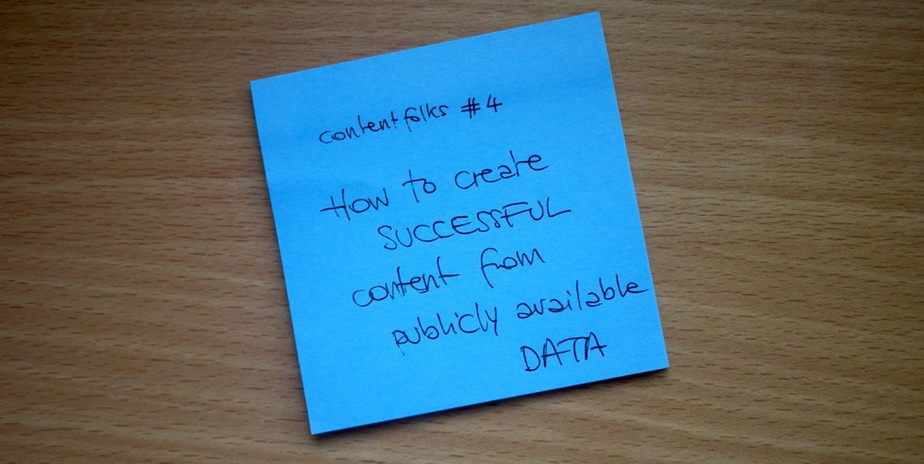 contentfolks #4
How to create
SUCCESSFUL
content from
publicly available
DATA